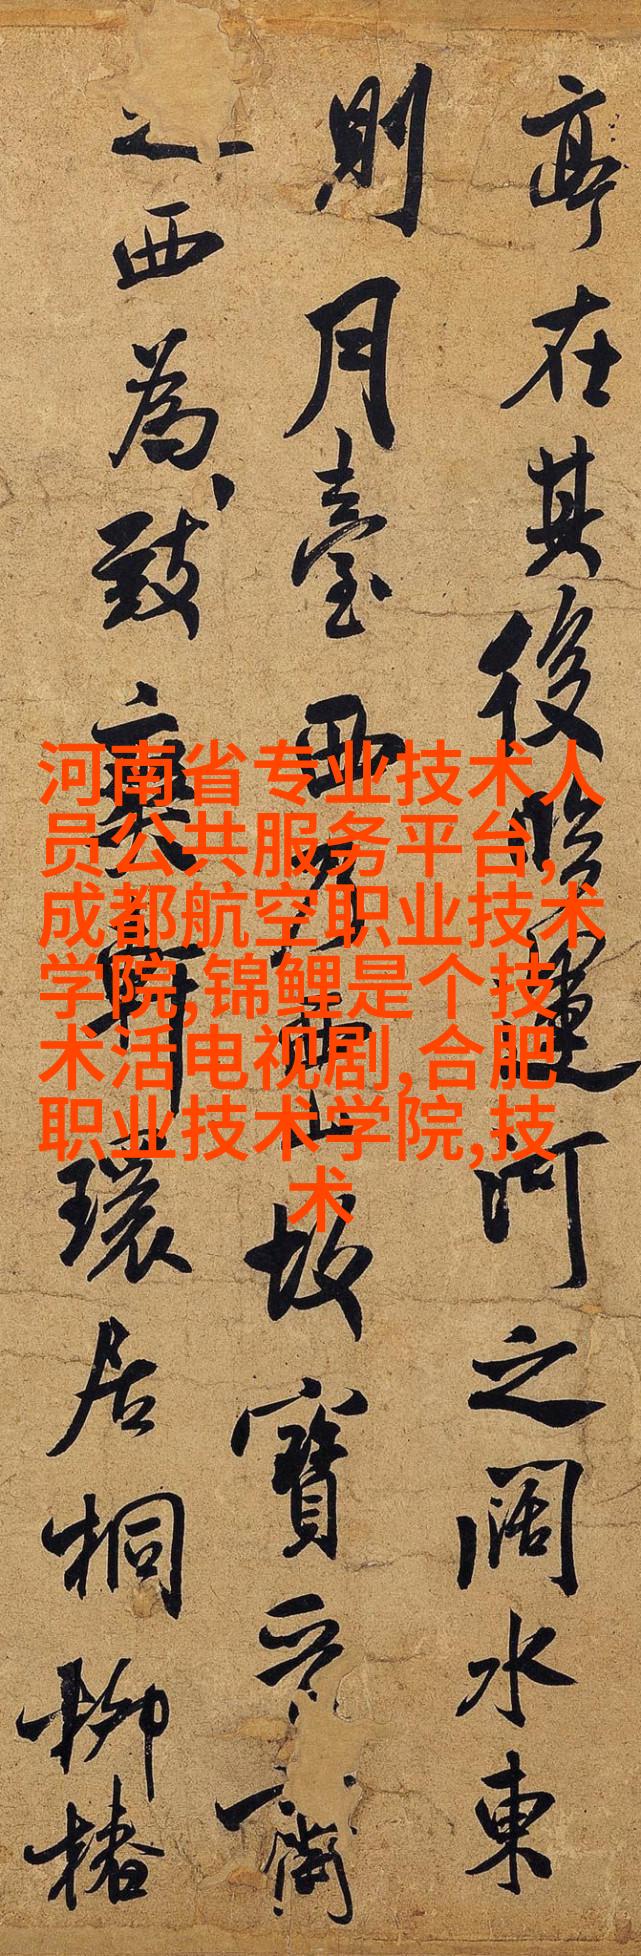 亭在其後臨運河之闊水東
則月臺西乃西山故寶晉齋
之西為致爽軒環居桐柳椿
河南省专业技术人
员公共服务平台,
成都航空职业技术
学院,锦鲤是个技
术活电视剧,合肥
职业技术学院,技
术